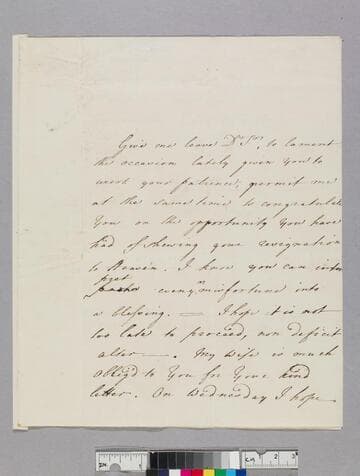 Give me leave Dr. Sr. to lament
the occasion lately given you to
exert your patience; permit me
at the same time to congratulate
You on the opportunity You have
had of shewing your resignation
to Heaven. I know you can
every misfortune into
a blessing. — I hope it is not
too late to proceed, non deficit
alter —. My Wife is much
oblig'd to You for Your kind
letter. On Wednesday I hope